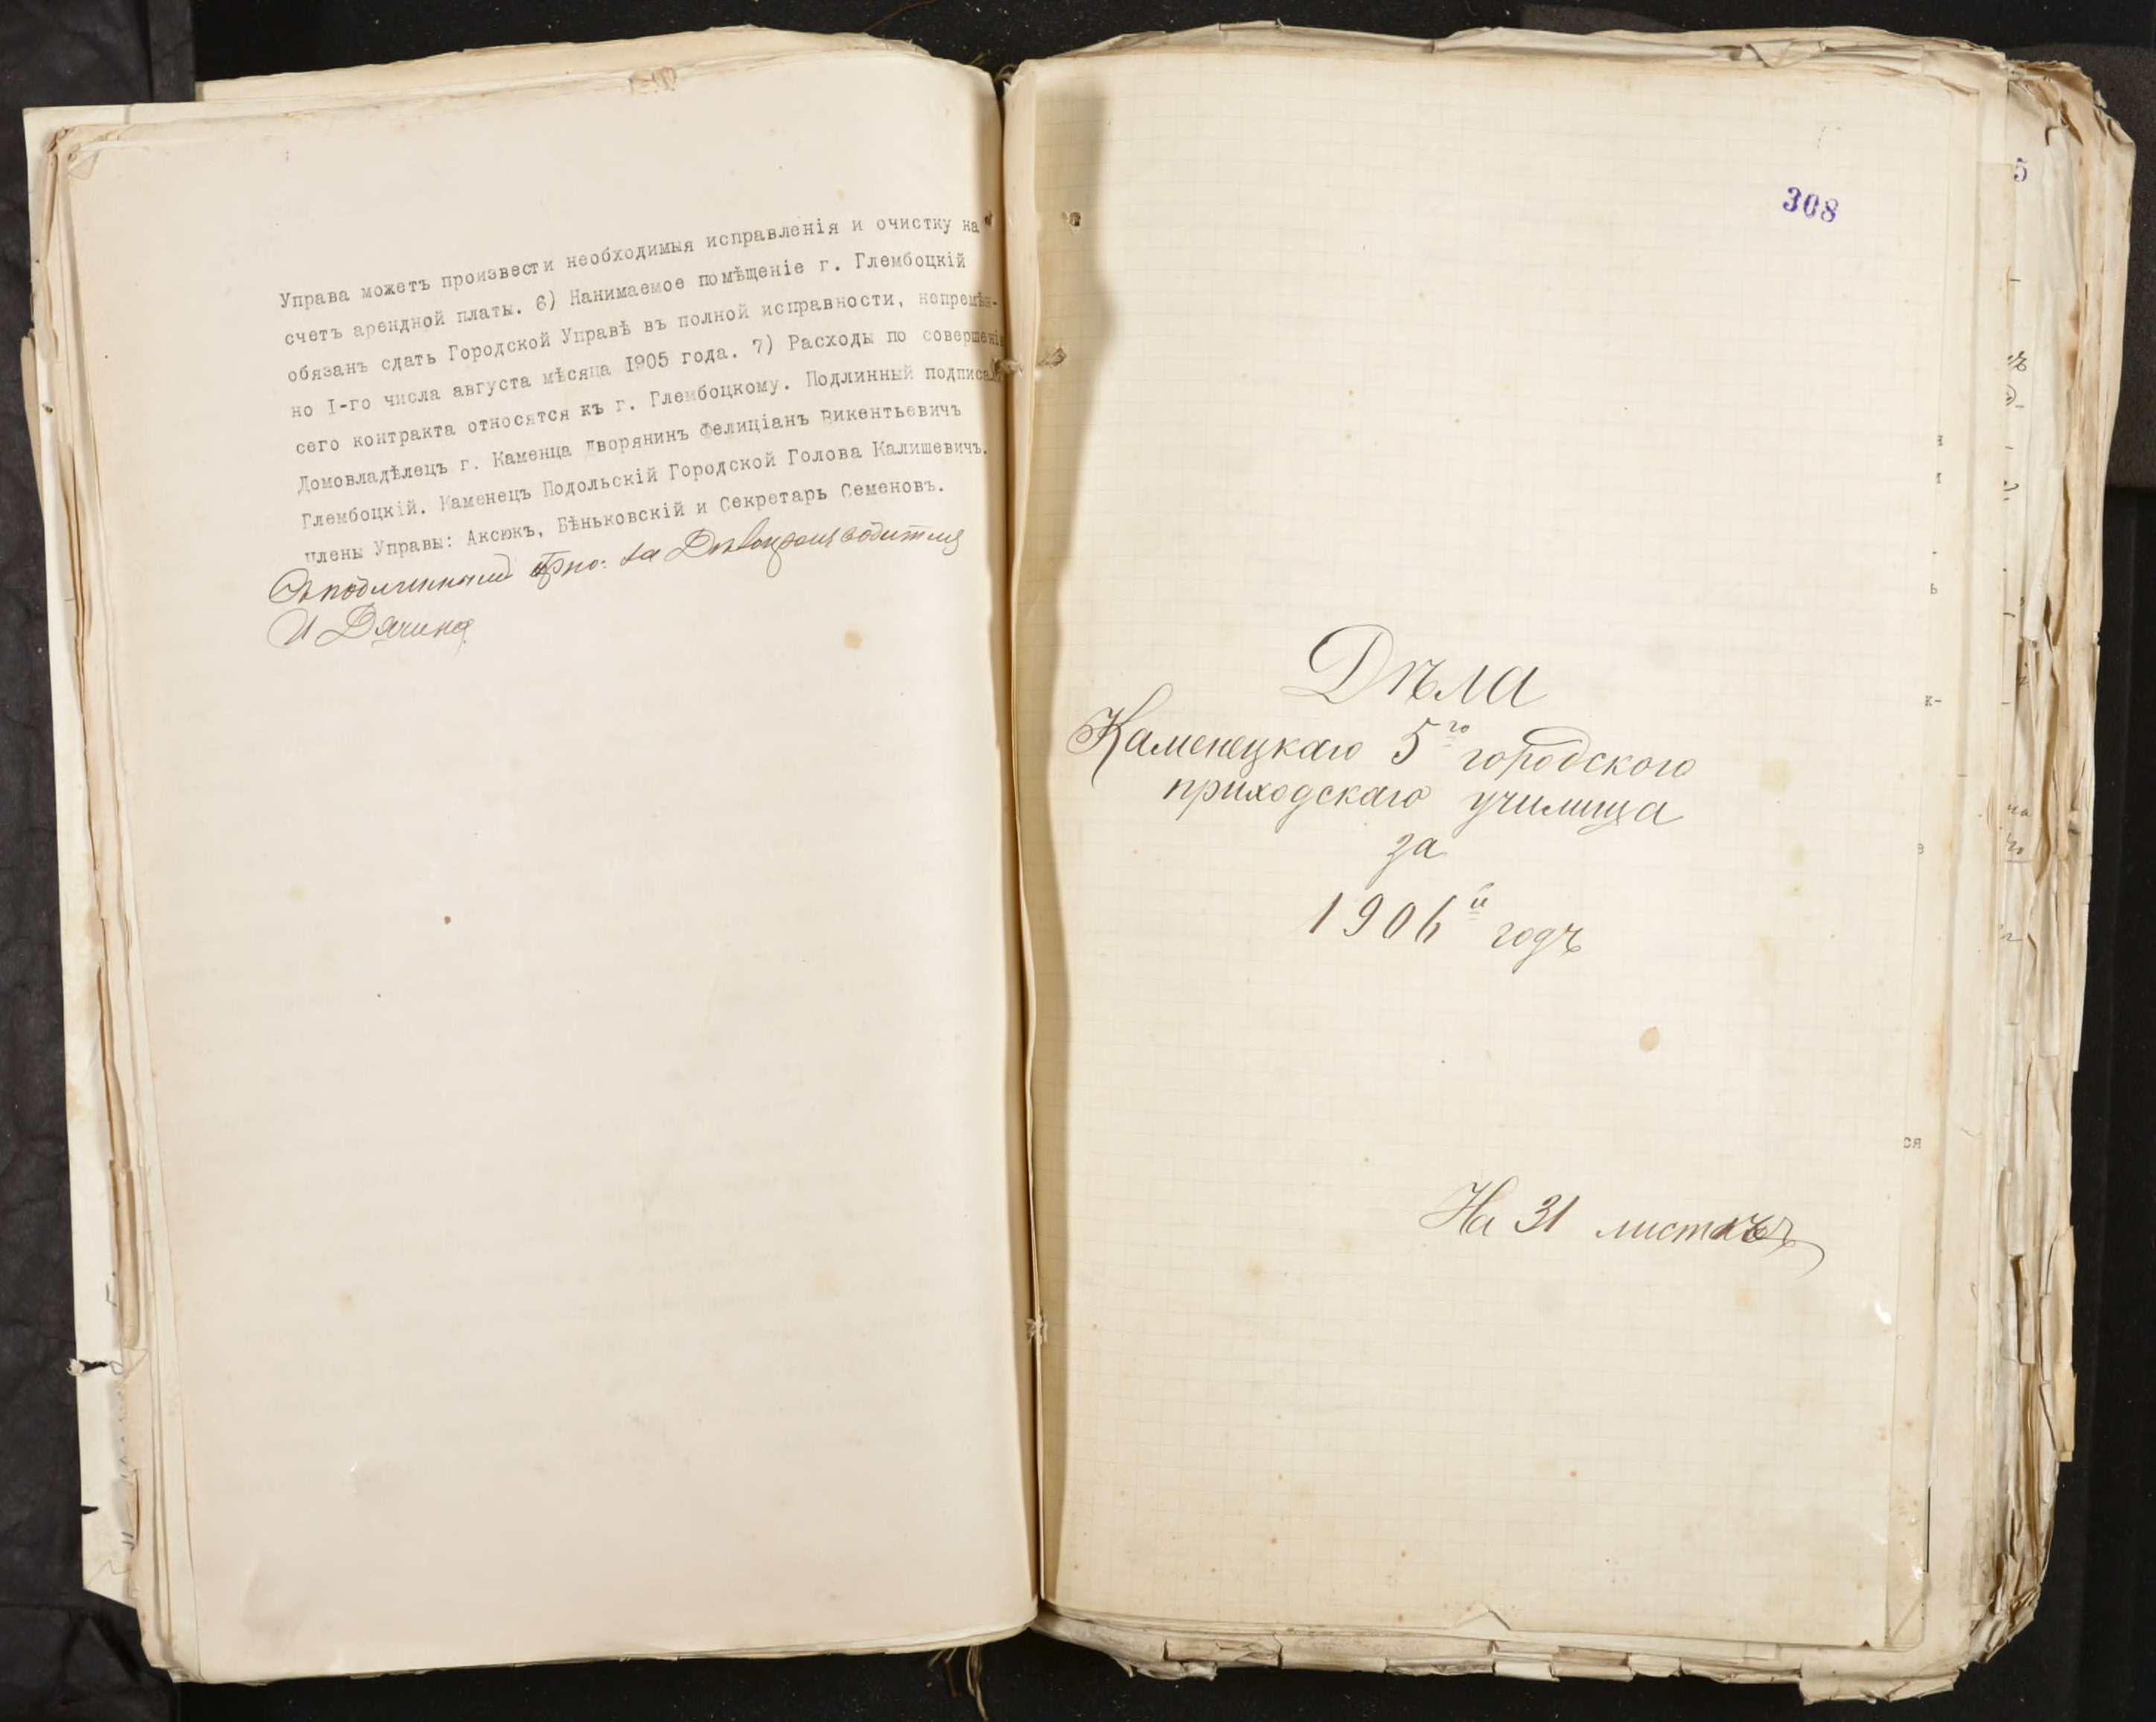 Управа можетъ произвести необходимыя исправленія и очистку на
счетъ арендной платы. 6) Нанимаемое помѣщеніе г. Глембоцкій
обязанъ сдать Городской Управѣ въ полной исправности, непремѣн-
но I-го числа августа мѣсяца 1905 года. 7) Расходы по совершені
сего контракта относятся къ г. Глембоцкому. Подлинный подписали
Домовладѣлецъ г. Каменца Дворянинъ Фелиціанъ Викентьевичъ
Глембоцкій. Каменецъ Подольскій Городской Голова Калишевичъ.
Члены Управы: Аксюкъ, Бѣньковскій и Секретарь Семеновъ.
Съ подлиннымъ вѣрно: за Дѣлопроизводителя
308
Дѣла
Каменецкаго 5го городского
приходскаго училища
за
1906й годъ
На 31 листахъ